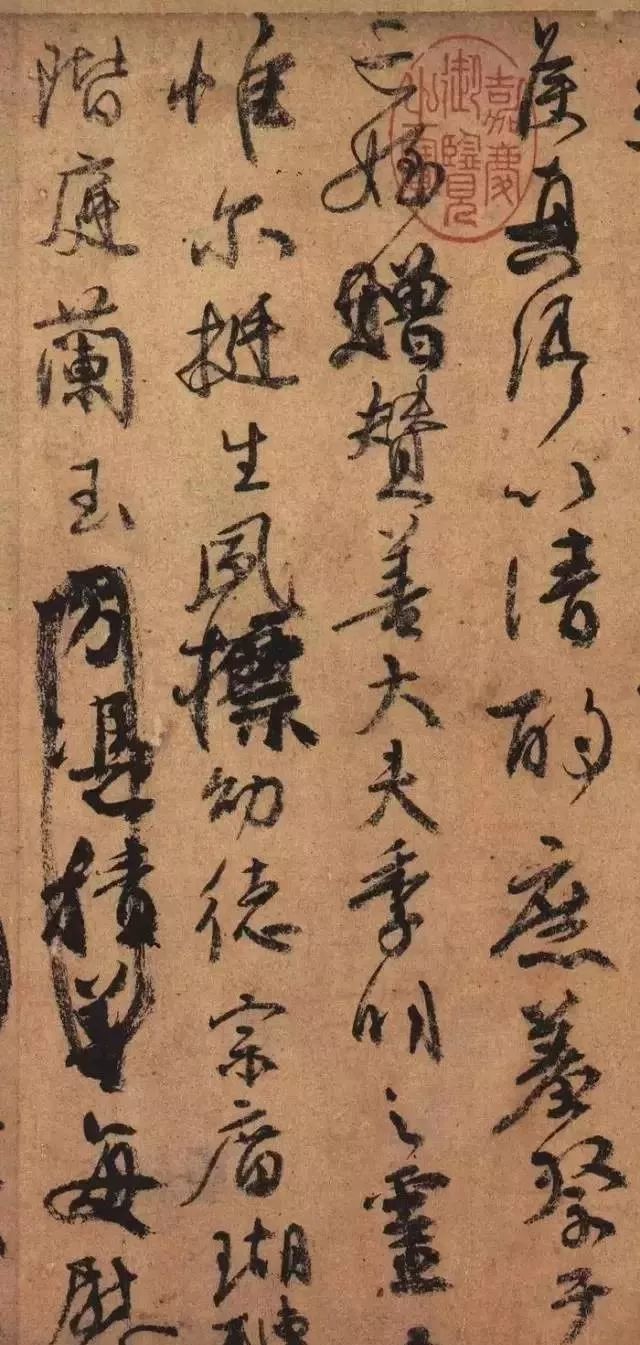 侯真卿以清酌庶羞祭于
亡姪贈贊善大夫季明之靈
惟尔挺生夙標幼德宗庿瑚璉
階庭蘭玉每慰
嘉慶御覽之寶